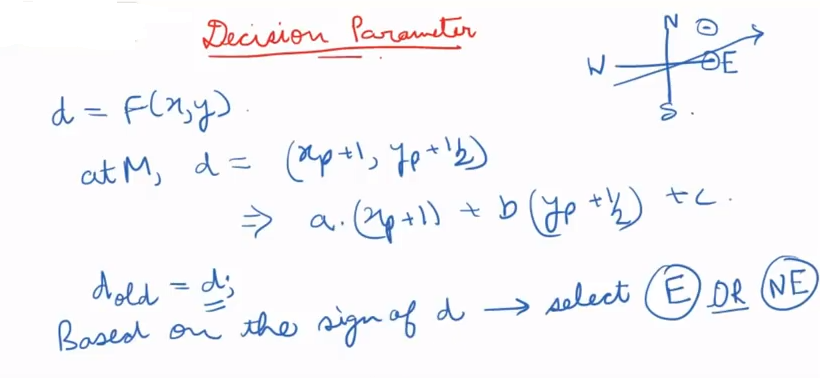 Decision Parameter
N
W
E
S.
d = F(x,y).
at M, d = (xp+1, yp+1/2)
⇒ a.(xp+1) + b(yp+1/2) + c.
dold = d;
Based on the sign of d → select E OR NE